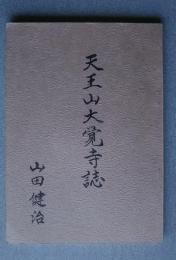 天王山大覚寺誌
山田健治